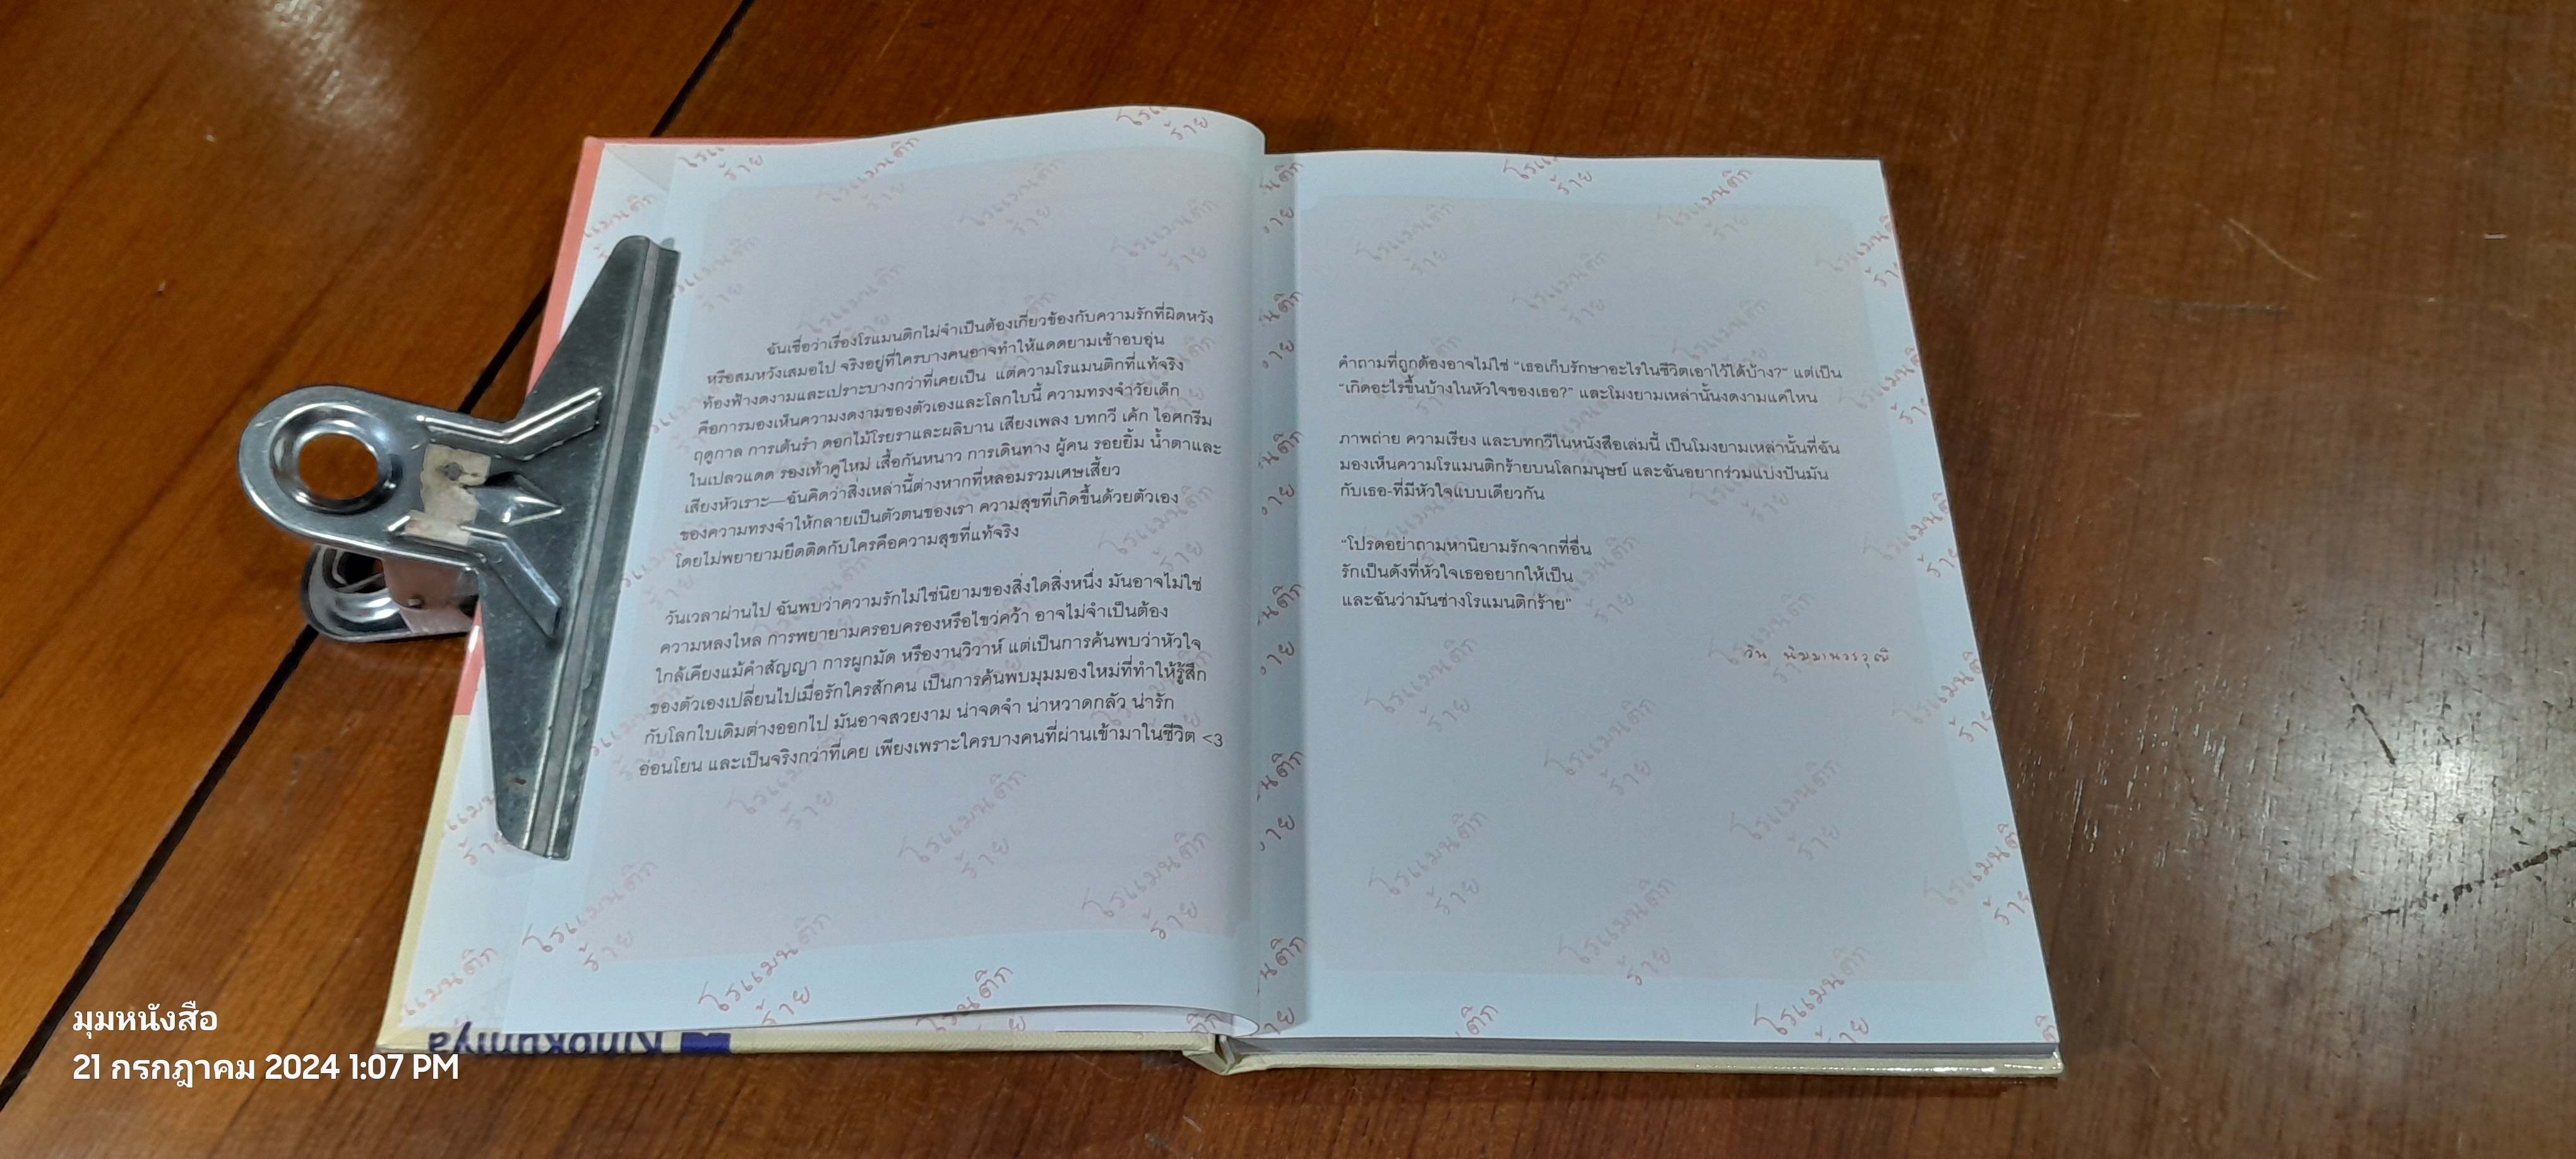 ฉันเชื่อว่าเรื่องโรแมนติกไม่จำเป็นต้องเกี่ยวข้องกับความรักที่ผิดหวัง
หรือสมหวังเสมอไป จริงอยู่ที่ใครบางคนอาจทำให้แดดยามเช้าอบอุ่น
ท้องฟ้างดงามและเปราะบางกว่าที่เคยเป็น แต่ความโรแมนติกที่แท้จริง
คือการมองเห็นความงดงามของตัวเองและโลกใบนี้ ความทรงจำวัยเด็ก
ฤดูกาล การเต้นรำ ดอกไม้โรยราและผลิบาน เสียงเพลง บทกวี เค้ก ไอศกรีม
ในเปลวแดด รองเท้าคู่ใหม่ เสื้อกันหนาว การเดินทาง ผู้คน รอยยิ้ม น้ำตาและ
เสียงหัวเราะ—ฉันคิดว่าสิ่งเหล่านี้ต่างหากที่หลอมรวมเศษเสี้ยว
ของความทรงจำให้กลายเป็นตัวตนของเรา ความสุขที่เกิดขึ้นด้วยตัวเอง
โดยไม่พยายามยึดติดกับใครคือความสุขที่แท้จริง
วันเวลาผ่านไป ฉันพบว่าความรักไม่ใช่นิยามของสิ่งใดสิ่งหนึ่ง มันอาจไม่ใช่
ความหลงใหล การพยายามครอบครองหรือไขว่คว้า อาจไม่จำเป็นต้อง
ใกล้เคียงแม้คำสัญญา การผูกมัด หรืองานวิวาห์ แต่เป็นการค้นพบว่าหัวใจ
ของตัวเองเปลี่ยนไปเมื่อรักใครสักคน เป็นการค้นพบมุมมองใหม่ที่ทำให้รู้สึก
กับโลกใบเดิมต่างออกไป มันอาจสวยงาม น่าจดจำ น่าหวาดกลัว น่ารัก
อ่อนโยน และเป็นจริงกว่าที่เคย เพียงเพราะใครบางคนที่ผ่านเข้ามาในชีวิต <3
คำถามที่ถูกต้องอาจไม่ใช่ “เธอเก็บรักษาอะไรในชีวิตเอาไว้ได้บ้าง?” แต่เป็น
“เกิดอะไรขึ้นบ้างในหัวใจของเธอ?” และโมงยามเหล่านั้นงดงามแค่ไหน
ภาพถ่าย ความเรียง และบทกวีในหนังสือเล่มนี้ เป็นโมงยามเหล่านั้นที่ฉัน
มองเห็นความโรแมนติกร้ายบนโลกมนุษย์ และฉันอยากร่วมแบ่งปันมัน
กับเธอ-ที่มีหัวใจแบบเดียวกัน
“โปรดอย่าถามหานิยามรักจากที่อื่น
รักเป็นดังที่หัวใจเธออยากให้เป็น
และฉันว่ามันช่างโรแมนติกร้าย”
โรแมนติก
ร้าย
Kinokuniya
มุมหนังสือ
21 กรกฎาคม 2024 1:07 PM